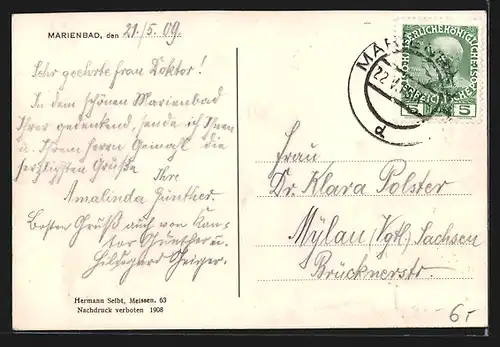 MARIENBAD, den 21./5. 09.
Sehr geehrte Frau Doktor!
In dem schönen Marienbad
Ihrer gedenkend, sende ich Ihnen
u. Ihrem Herrn Gemahl die
herzlichsten Grüße
Ihre
Amalinda Günther.
Besten Gruß auch von Kan-
tor Günther u.
Hildegard Geiger.
Hermann Seibt, Meissen. 63
Nachdruck verboten 1908
MARIENBAD
22.V.
d
5 5
Frau
Dr. Klara Polster
Mylau (Vgtl.) Sachsen
Brücknerstr.
6,-